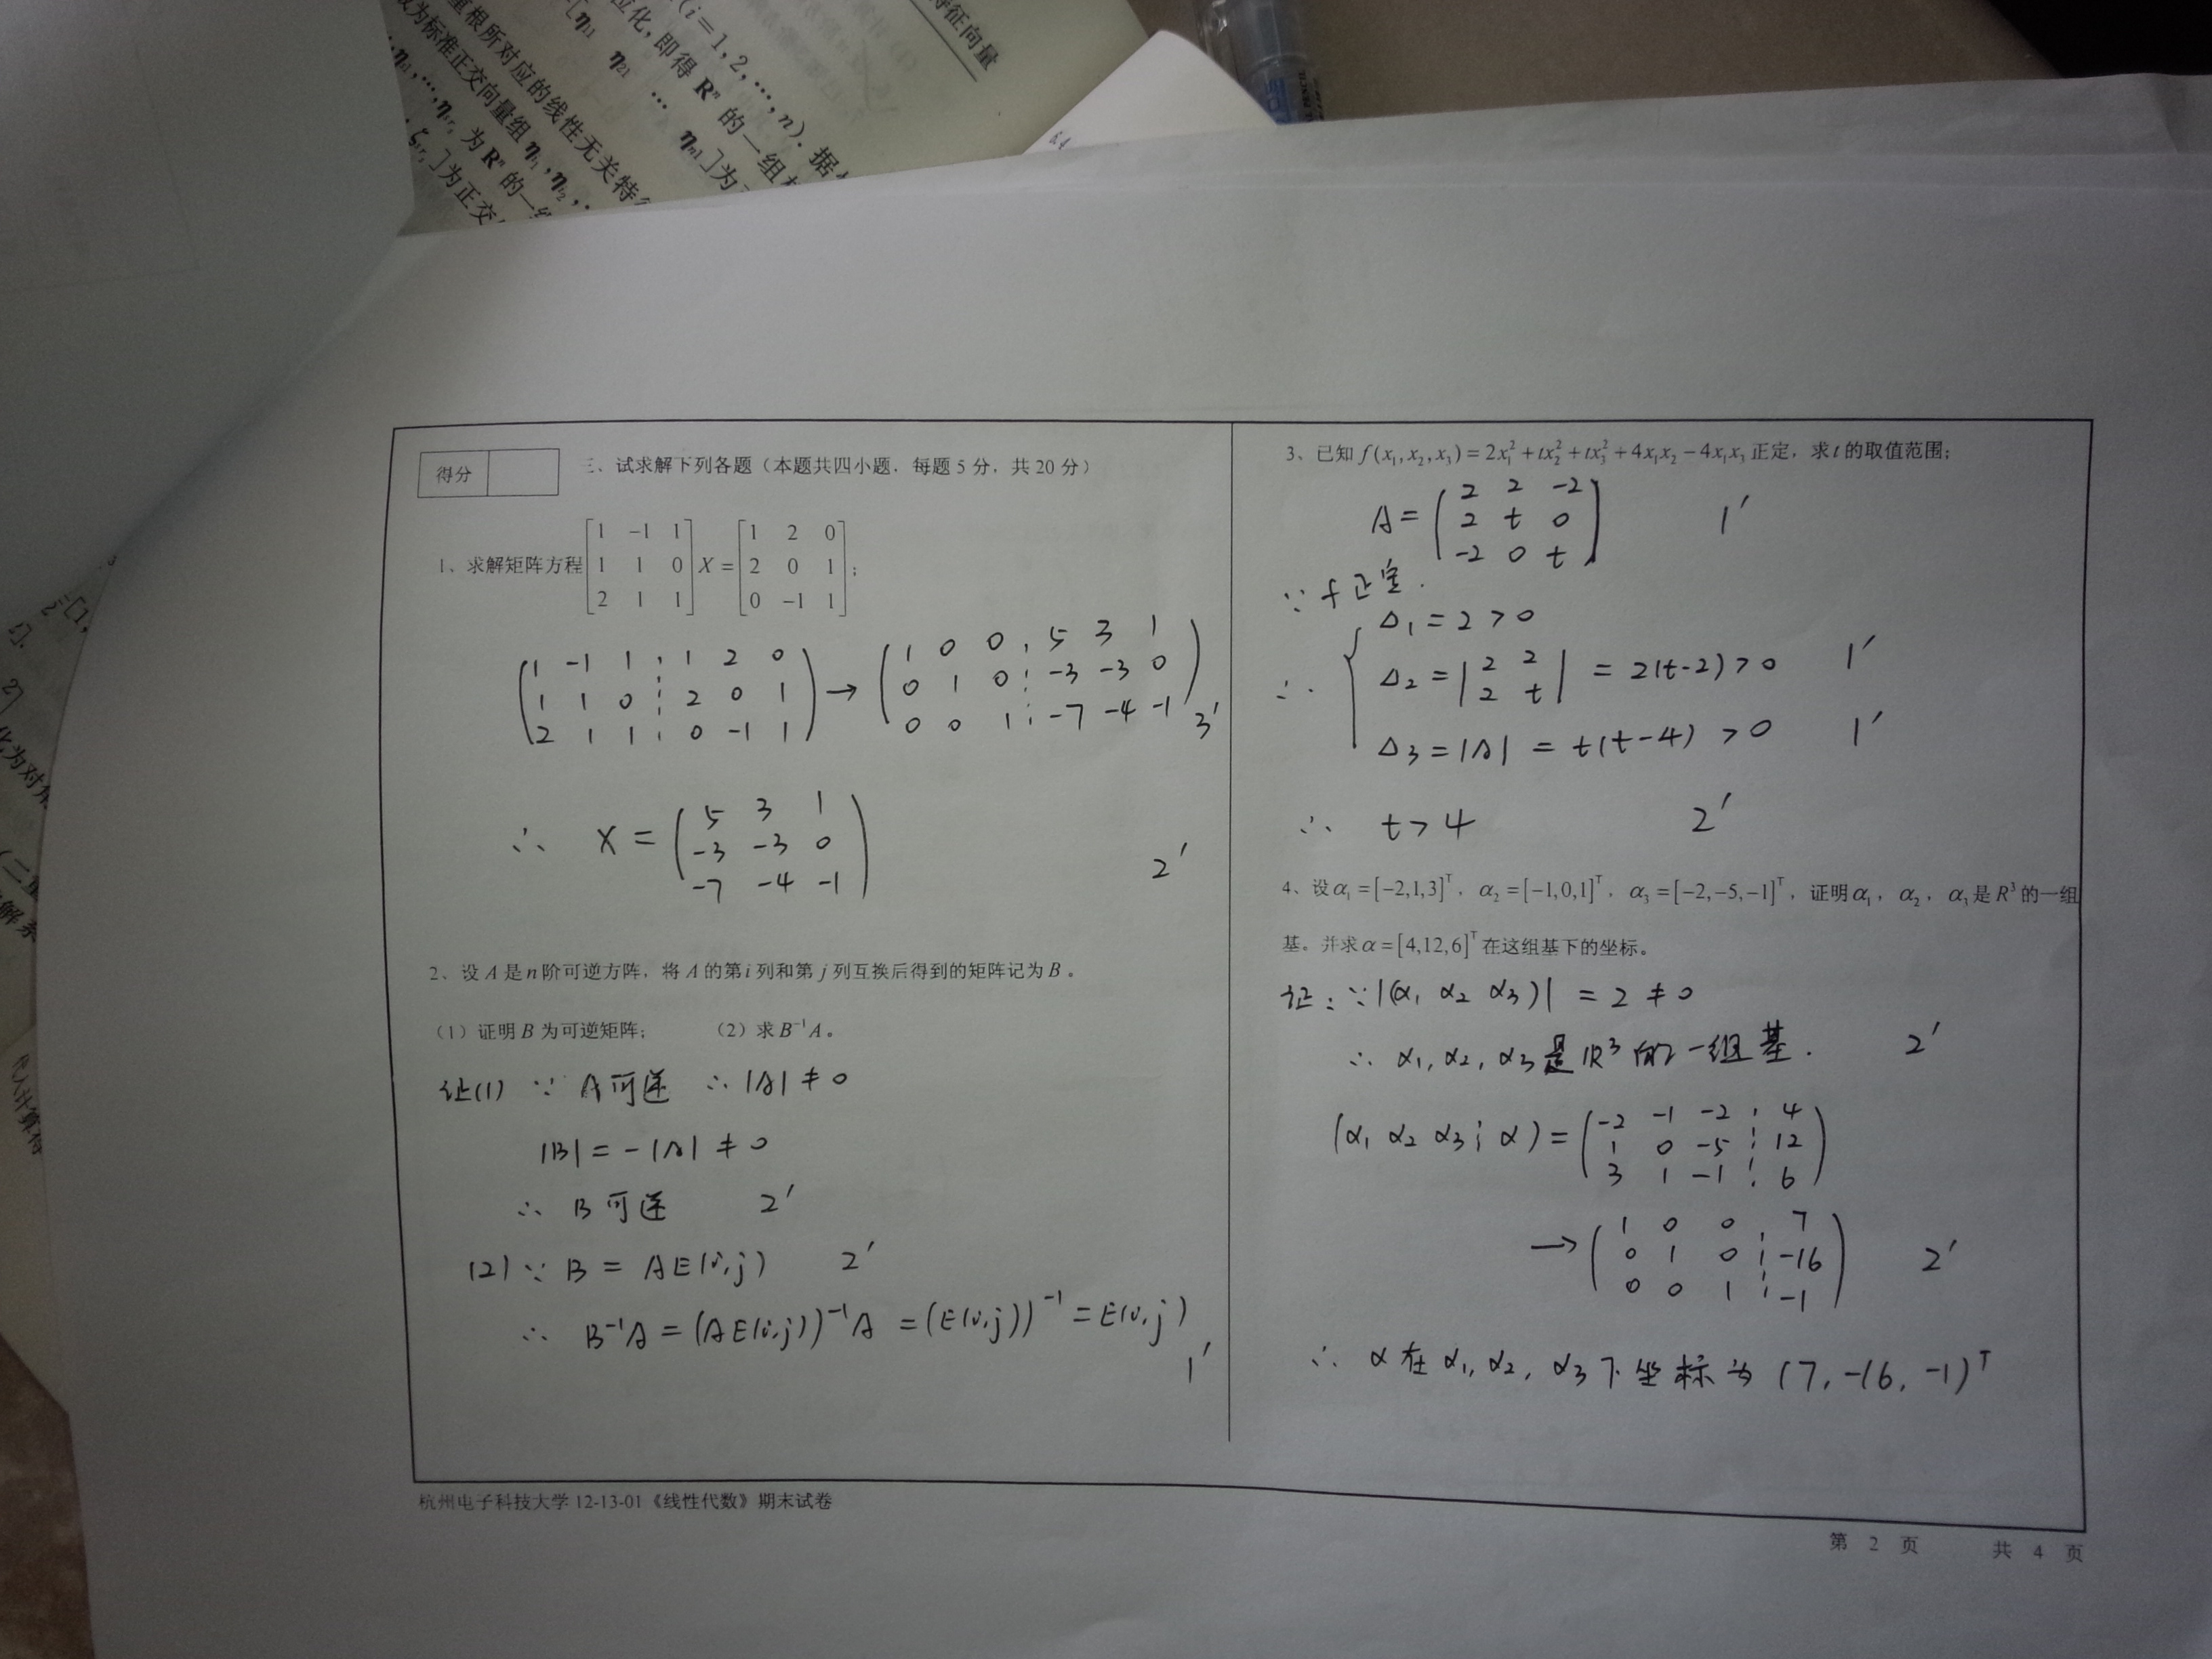 特征向量
(i=1,2,…,n). 据
位化, 即得 Rⁿ 的一组
重根所对应的线性无关特
为标准正交向量组
为 Rⁿ 的一
]为正交
得分
三、试求解下列各题（本题共四小题，每题 5 分，共 20 分）
1、求解矩阵方程 [1 -1 1; 1 1 0; 2 1 1] X = [1 2 0; 2 0 1; 0 -1 1]；
(1 -1 1 ⋮ 1 2 0; 1 1 0 ⋮ 2 0 1; 2 1 1 ⋮ 0 -1 1) → (1 0 0 ⋮ 5 3 1; 0 1 0 ⋮ -3 -3 0; 0 0 1 ⋮ -7 -4 -1) 3′
∴ X = (5 3 1; -3 -3 0; -7 -4 -1) 2′
2、设 A 是 n 阶可逆方阵，将 A 的第 i 列和第 j 列互换后得到的矩阵记为 B 。
（1）证明 B 为可逆矩阵； （2）求 B⁻¹A 。
证(1) ∵ A可逆 ∴ |A| ≠ 0
|B| = -|A| ≠ 0
∴ B可逆 2′
(2) ∵ B = AE(i,j) 2′
∴ B⁻¹A = (AE(i,j))⁻¹A = (E(i,j))⁻¹ = E(i,j)
1′
3、已知 f(x₁,x₂,x₃) = 2x₁² + tx₂² + tx₃² + 4x₁x₂ − 4x₁x₃ 正定，求 t 的取值范围；
A = (2 2 -2; 2 t 0; -2 0 t) 1′
∵ f正定.
Δ₁ = 2 > 0
∴ Δ₂ = |2 2; 2 t| = 2(t-2) > 0 1′
Δ₃ = |A| = t(t-4) > 0 1′
∴ t > 4 2′
4、设 α₁ = [−2,1,3]ᵀ，α₂ = [−1,0,1]ᵀ，α₃ = [−2,−5,−1]ᵀ，证明 α₁，α₂，α₃ 是 R³ 的一组
基。并求 α = [4,12,6]ᵀ 在这组基下的坐标。
证: ∵ |(α₁ α₂ α₃)| = 2 ≠ 0
∴ α₁, α₂, α₃ 是 R³ 的一组基. 2′
(α₁ α₂ α₃ ⋮ α) = (-2 -1 -2 ⋮ 4; 1 0 -5 ⋮ 12; 3 1 -1 ⋮ 6)
→ (1 0 0 ⋮ 7; 0 1 0 ⋮ -16; 0 0 1 ⋮ -1) 2′
∴ α 在 α₁, α₂, α₃ 下坐标为 (7, -16, -1)ᵀ
杭州电子科技大学 12-13-01《线性代数》期末试卷
第 2 页 共 4 页